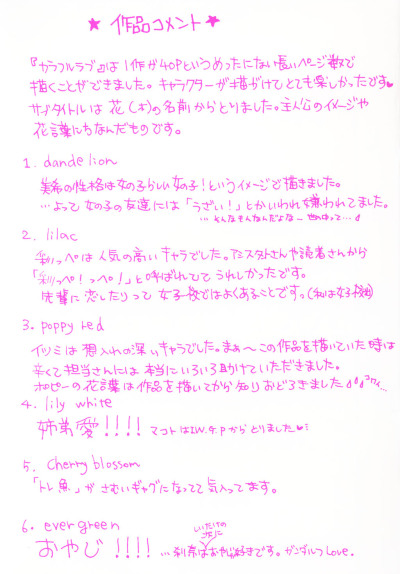 ★ 作品コメント ★
『カラフルラブ』は1作が40Pというめったにない長いページ数で
描くことができました。キャラクターが描けてとても楽しかったです♥
サブタイトルは花(木)の名前からとりました。主人公のイメージや
花言葉にちなんだものです。
1. dandelion
美希の性格は女の子らしい女の子!というイメージで描きました。
…よって女の子の友達には「うざい!」とかいわれ嫌われてました。
…そんなもんなんだよな〜世の中って…
2. lilac
彩っぺは人気の高いキャラでした。アシスタトさんや読者さんから
「彩っぺ!っぺ!」と呼ばれてて うれしかったです。
先輩に恋したりって女子校ではよくあることです。(私は女子校出)
3. poppy red
イツミは思入れの深いキャラでした。まぁ〜この作品を描いていた時は
辛くて担当さんには本当にいろいろ助けていただきました。
ポピーの花言葉は作品を描いてから知りおどろきました
4. lily white
姉弟愛!!!! マコトはI.W.G.Pからとりました♥…
5. cherry blossom
「トレ魚」がさむいギャグになってて気入ってます。
6. evergreen
おやじ!!!! …刹奈はおやじ好きです。ガンダルフLove.